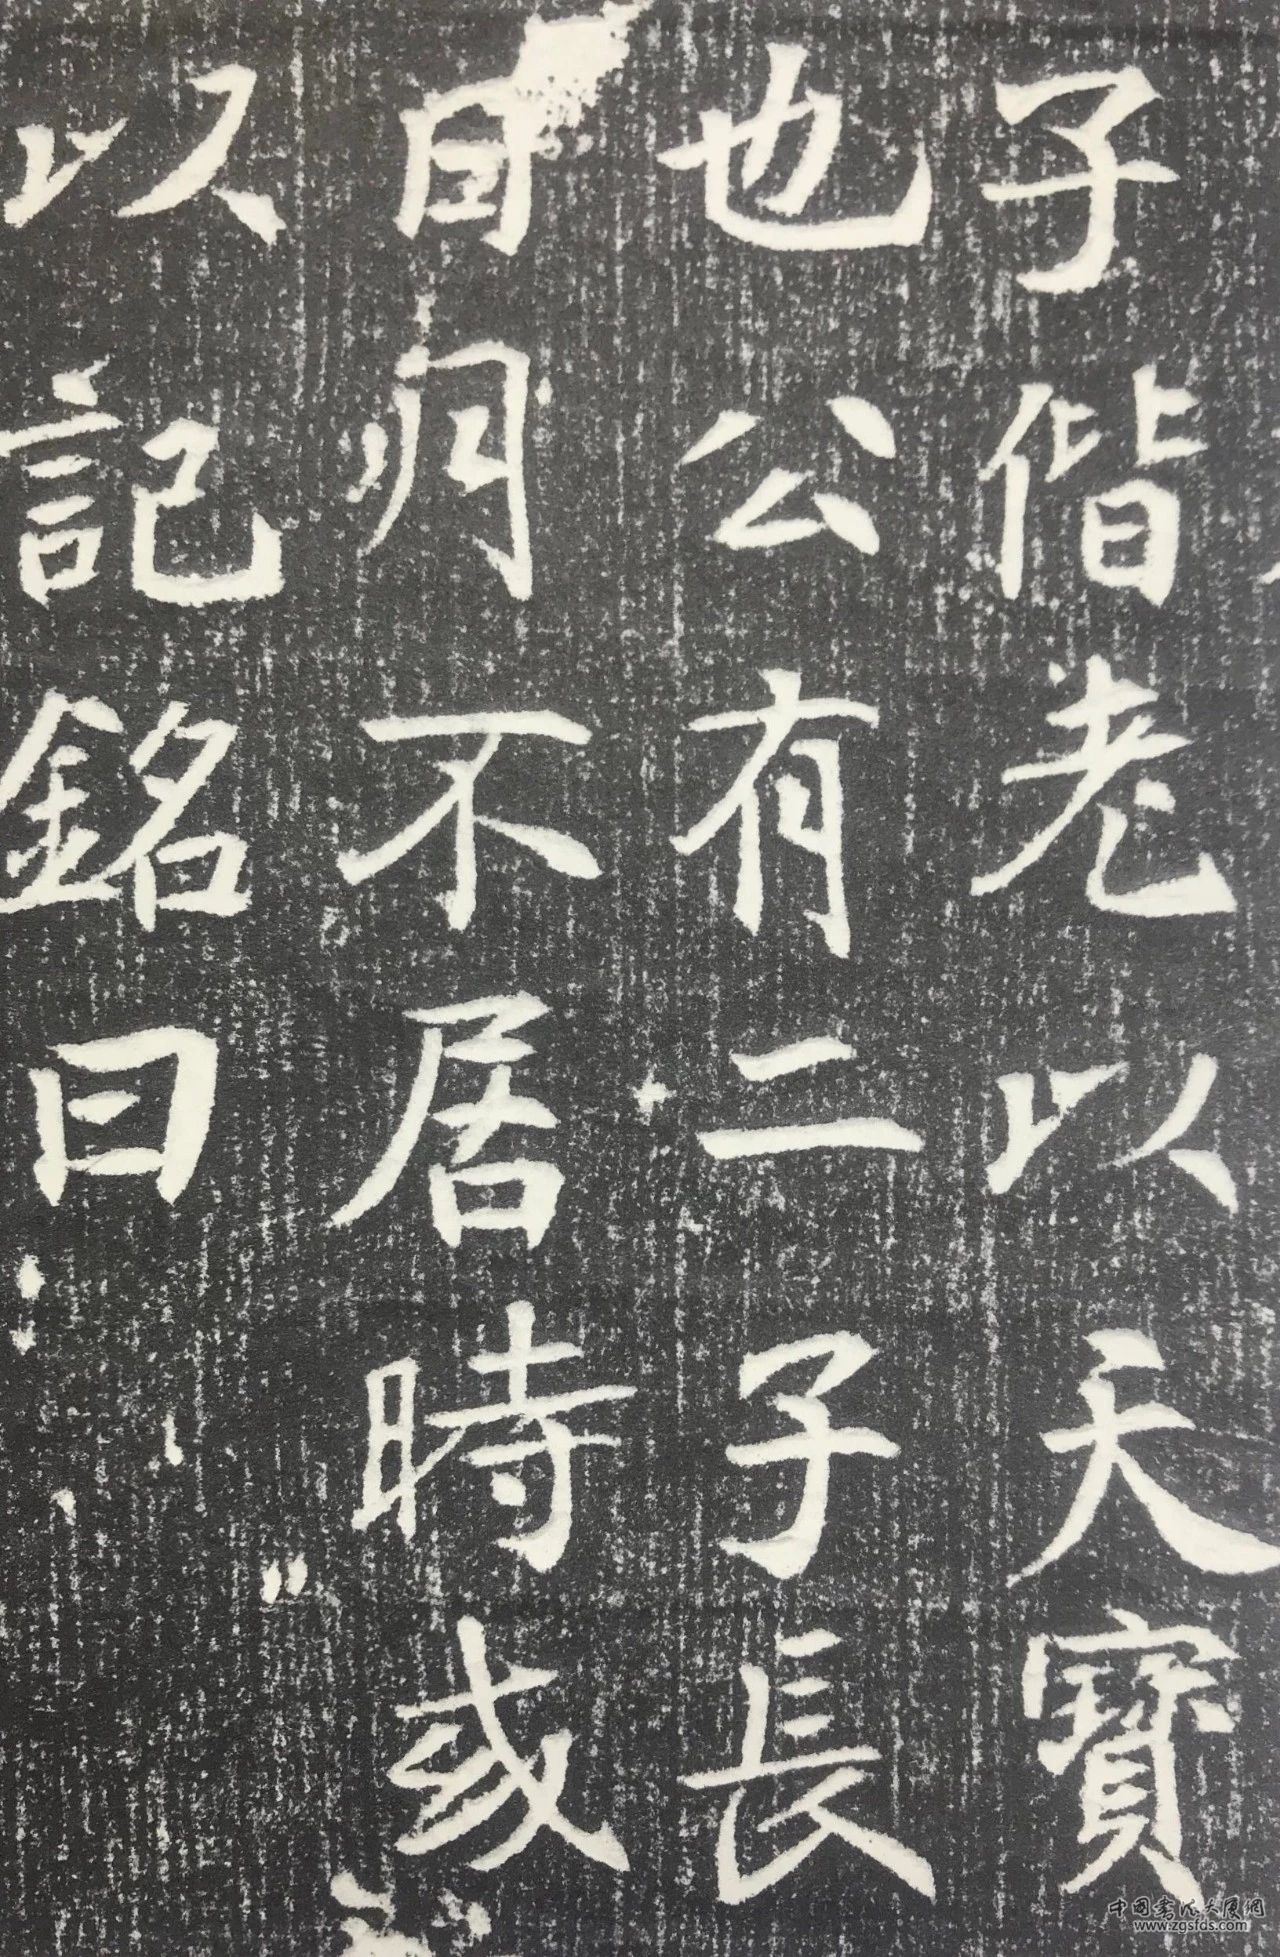 子偕老以天寶
也公有二子長
日月不居時或
以記銘曰
中国书法大展网
www.zgsfds.com